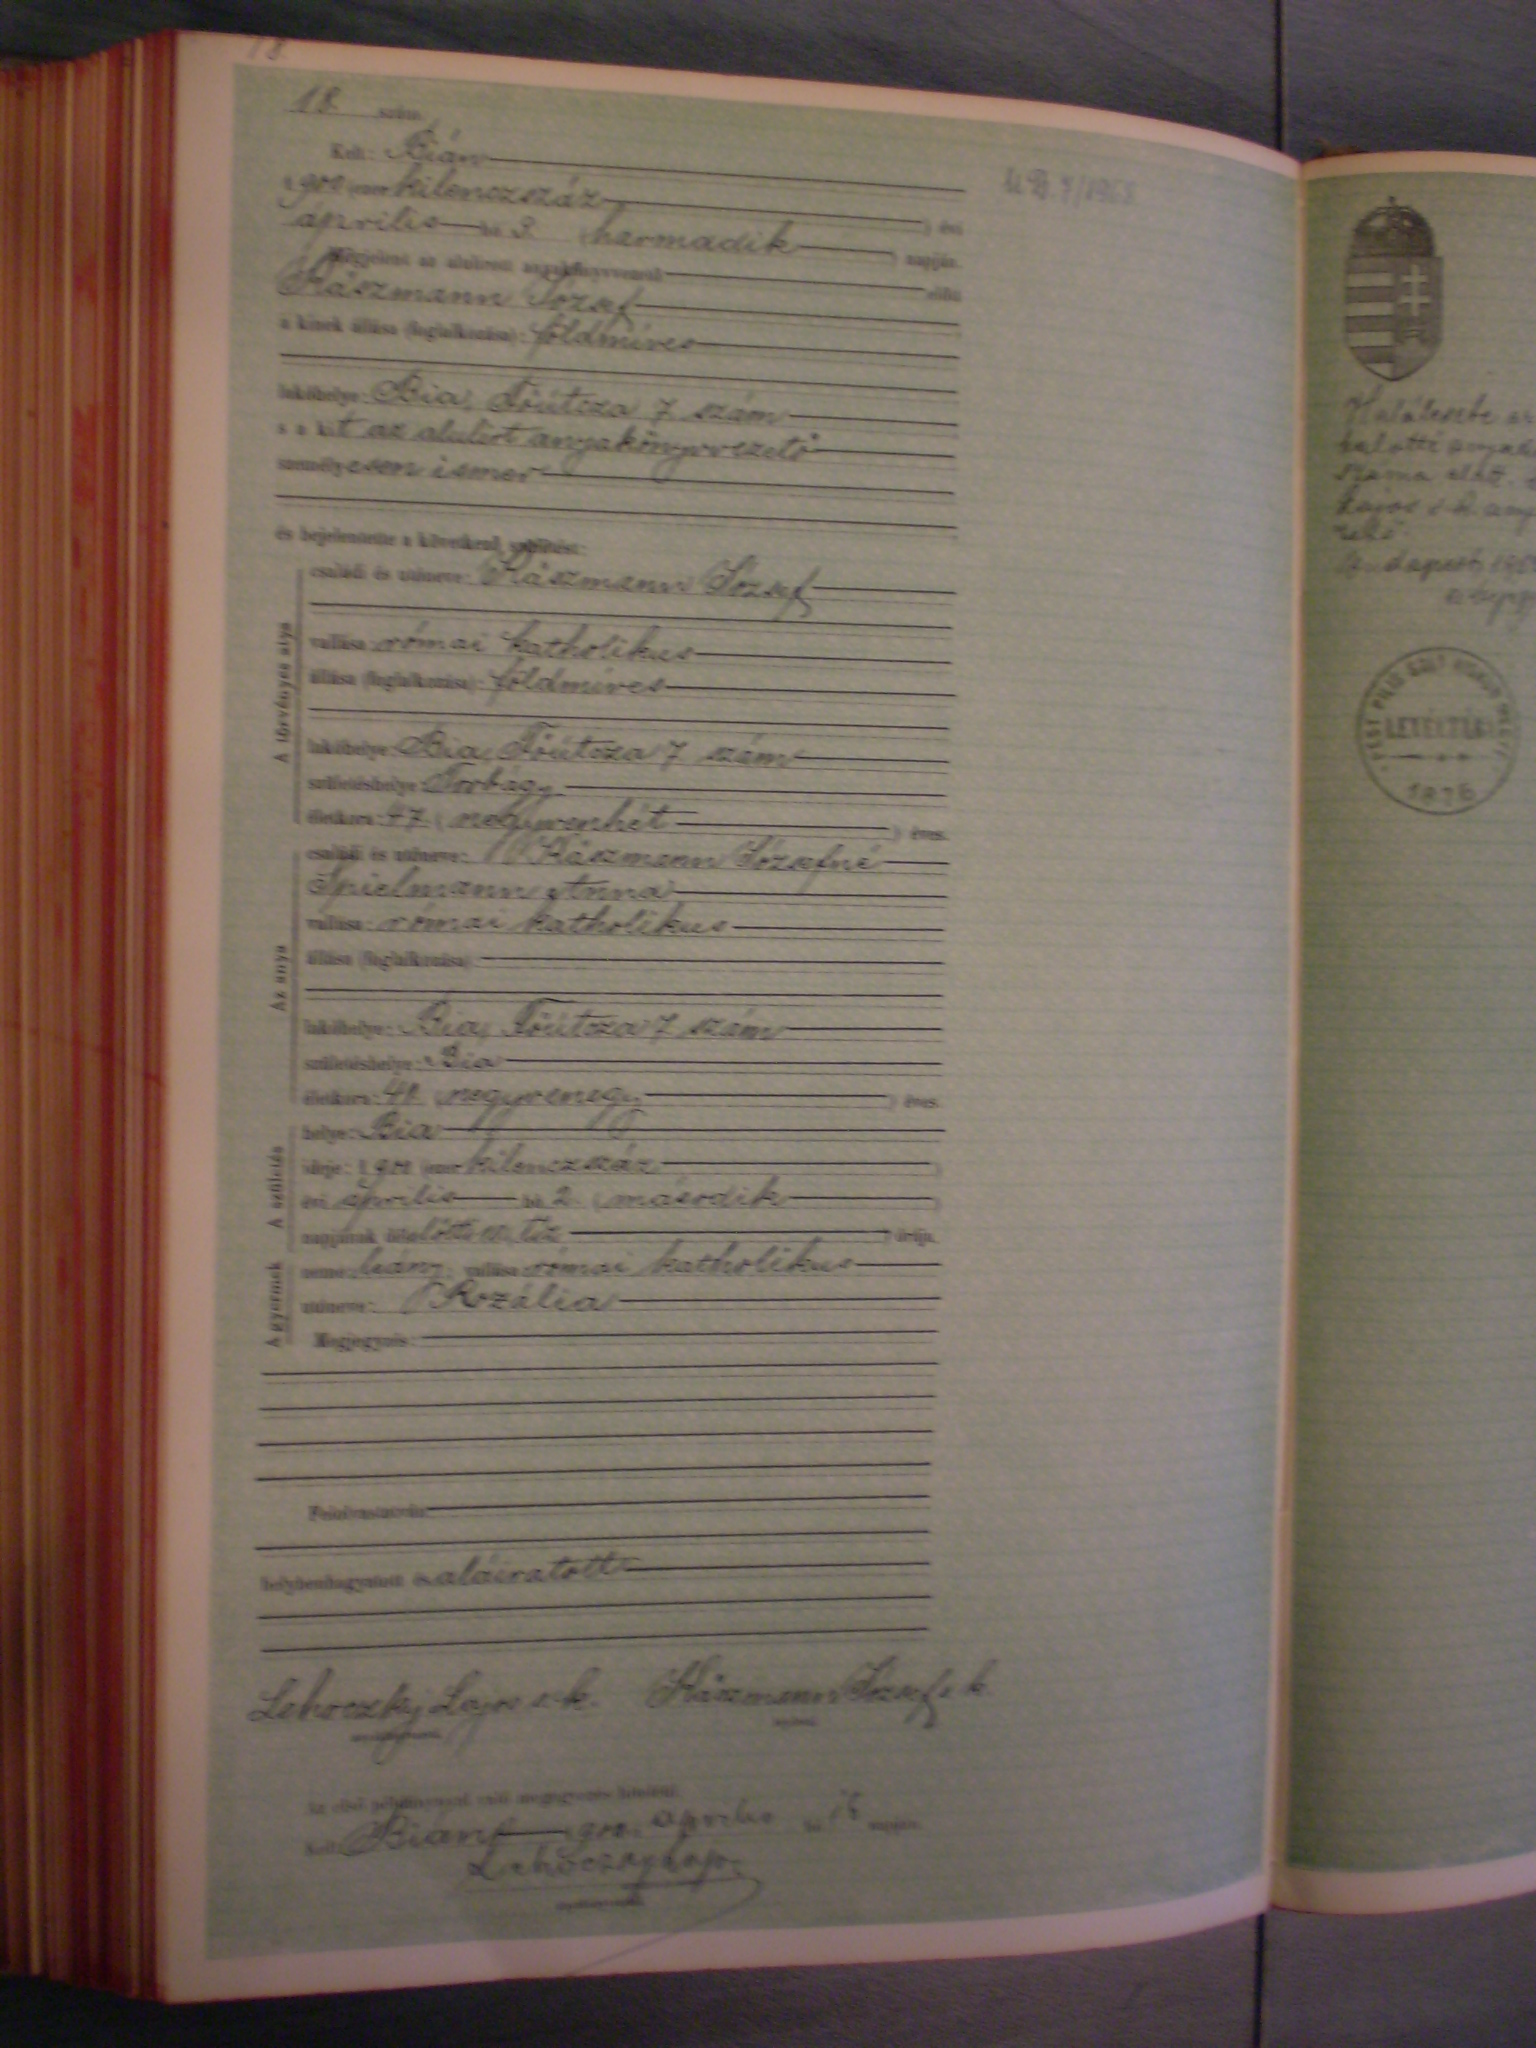 18.
18. szám.
Kelt: Bián
1900 (ezer kilenczszáz ) évi
április hó 3 (harmadik ) napján.
Megjelent az alulirott anyakönyvvezető előtt
Hászmann József
a kinek állása (foglalkozása): földmíves
lakóhelye: Bia, Főútcza 7 szám
a kit az alulírt anyakönyvvezető
személyesen ismer
és bejelentette a következő születést:
A törvényes atya
családi és utóneve: Hászmann József
vallása: római katholikus
állása (foglalkozása): földmíves
lakóhelye: Bia, Főútcza 7 szám
születéshelye: Torbágy
életkora: 47 (negyvenhét ) éves.
Az anya
családi és utóneve: Hászmann Józsefné
Spielmann Anna
vallása: római katholikus
állása (foglalkozása):
lakóhelye: Bia, Főútcza 7 szám
születéshelye: Bia
életkora: 41. (negyvenegy ) éves.
A születés
helye: Bia
ideje: 1900 (ezer kilenczszáz )
évi április hó 2. (második )
napjának délelőtti 10, tíz ) órája.
A gyermek
neme: leány; vallása: római katholikus
utóneve: Rozália
Megjegyzés:
Felolvastatván
helybenhagyatott és aláíratott
Lehoczky Lajos s. k. Hászmann József s. k.
Az első példánnyal való megegyezés hiteléül.
Kelt Bián 1900. április hó napján.
Lehoczky Lajos
anyakönyvvezető.
Halálesete
halotti
száma alatt.
Lajos s. k.
Budapest,
PEST PILIS SOLT KISKUN
LEVÉLTÁR
1876